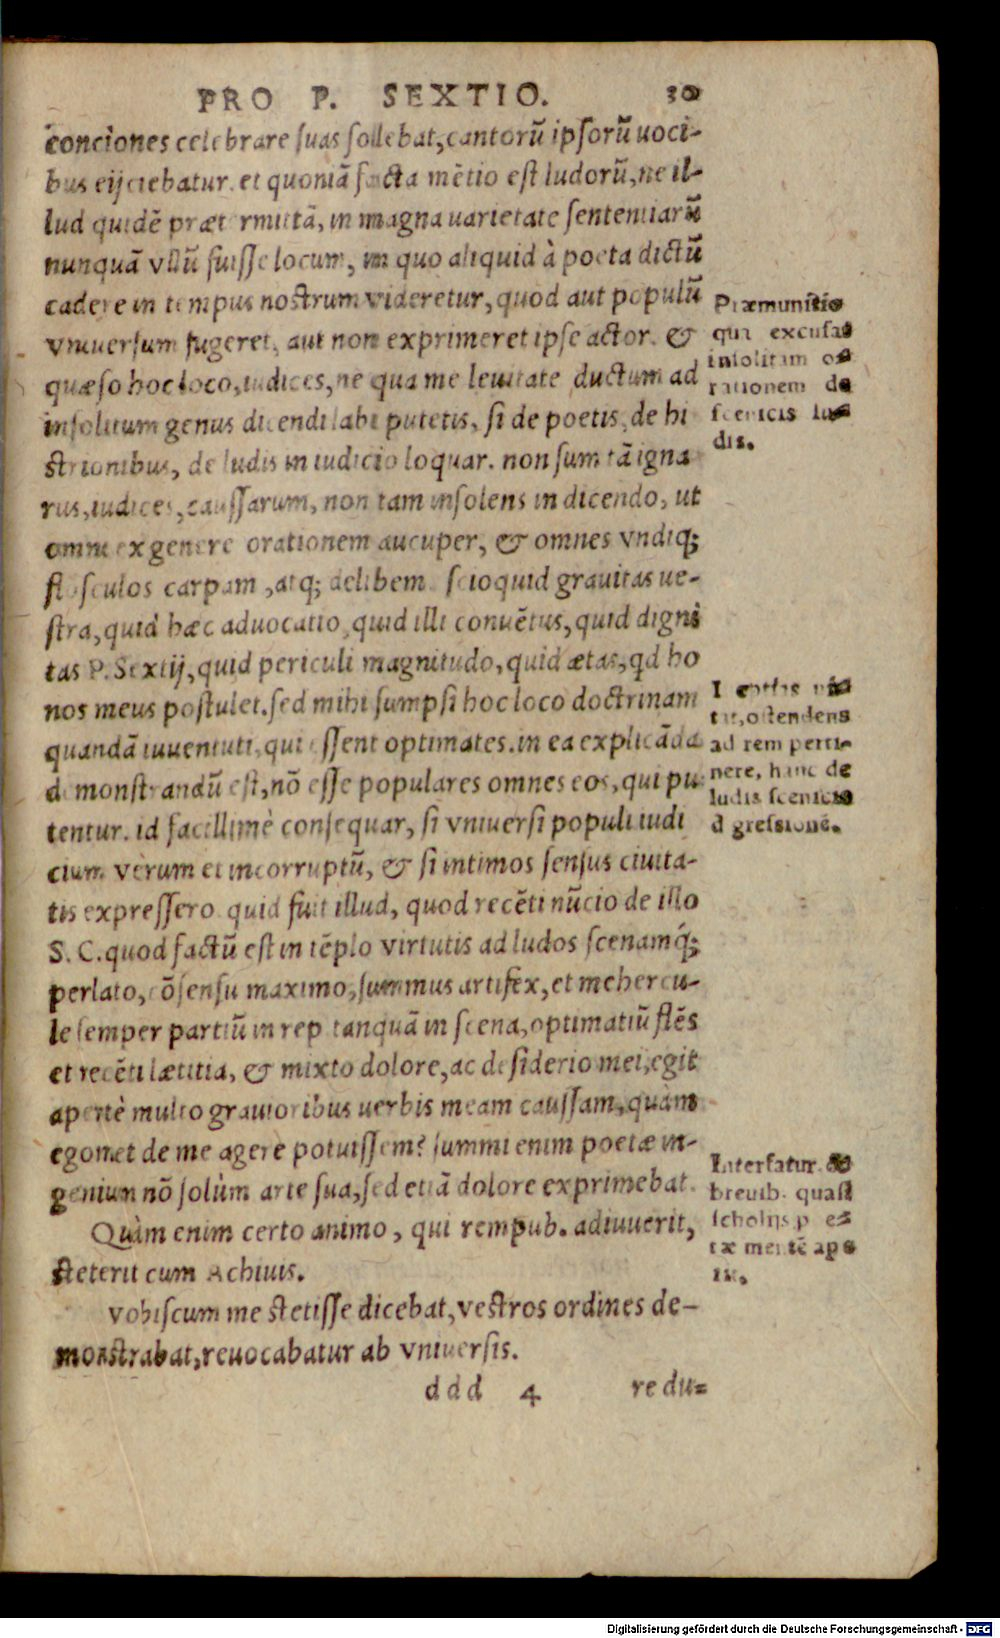 PRO P. SEXTIO. 30
conciones celebrare suas sollebat, cantorũ ipsorũ uoci-
bus eijciebatur. et quoniã facta mẽtio est ludorũ, ne il-
lud quidẽ prætermittã, in magna uarietate sententiarũ
nunquã vllũ fuisse locum, in quo aliquid à poeta dictũ
cadere in tempus nostrum videretur, quod aut populũ
vniuersum fugeret, aut non exprimeret ipse actor. &
quæso hoc loco, iudices, ne qua me leuitate ductum ad
insolitum genus dicendi labi putetis, si de poetis, de hi
strionibus, de ludis in iudicio loquar. non sum tã igna
rus, iudices, caussarum, non tam insolens in dicendo, ut
omni ex genere orationem aucuper, & omnes vndiq;
flosculos carpam, atq; delibem. scio quid grauitas ue-
stra, quid hæc aduocatio, quid illi conuẽtus, quid digni
tas P. Sextij, quid periculi magnitudo, quid ætas, qd ho
nos meus postulet. sed mihi sumpsi hoc loco doctrinam
quandã iuuentuti, qui essent optimates. in ea explicãda
demonstrandũ est, nõ esse populares omnes eos, qui pu
tentur. id facillimè consequar, si vniuersi populi iudi
cium verum et incorruptũ, & si intimos sensus ciuita-
tis expressero. quid fuit illud, quod recẽti nũcio de illo
S. C. quod factũ est in tẽplo virtutis ad ludos scenamq́;
perlato, cõsensu maximo, summus artifex, et mehercu-
le semper partiũ in rep tanquã in scena, optimatiũ flẽs
et recẽti lætitia, & mixto dolore, ac desiderio mei, egit
apertè multo grauioribus uerbis meam caussam, quàm
egomet de me agere potuissem? summi enim poetæ in-
genium nõ solùm arte sua, sed etiã dolore exprimebat.
Quàm enim certo animo, qui rempub. adiuuerit,
steterit cum Achiuis.
vobiscum me stetisse dicebat, vestros ordines de-
monstrabat, reuocabatur ab vniuersis.
ddd 4 redu=
Præmunitio
qua excusat
insolitam o=
rationem de
scenicis lu=
dis.
ostendens
ad rem perti-
nere, hanc de
ludis scenicis
digressionẽ.
Interfatur &
breuib. quasi
scholijs
tæ mentẽ ape
rit.
Digitalisierung gefördert durch die Deutsche Forschungsgemeinschaft - DFG